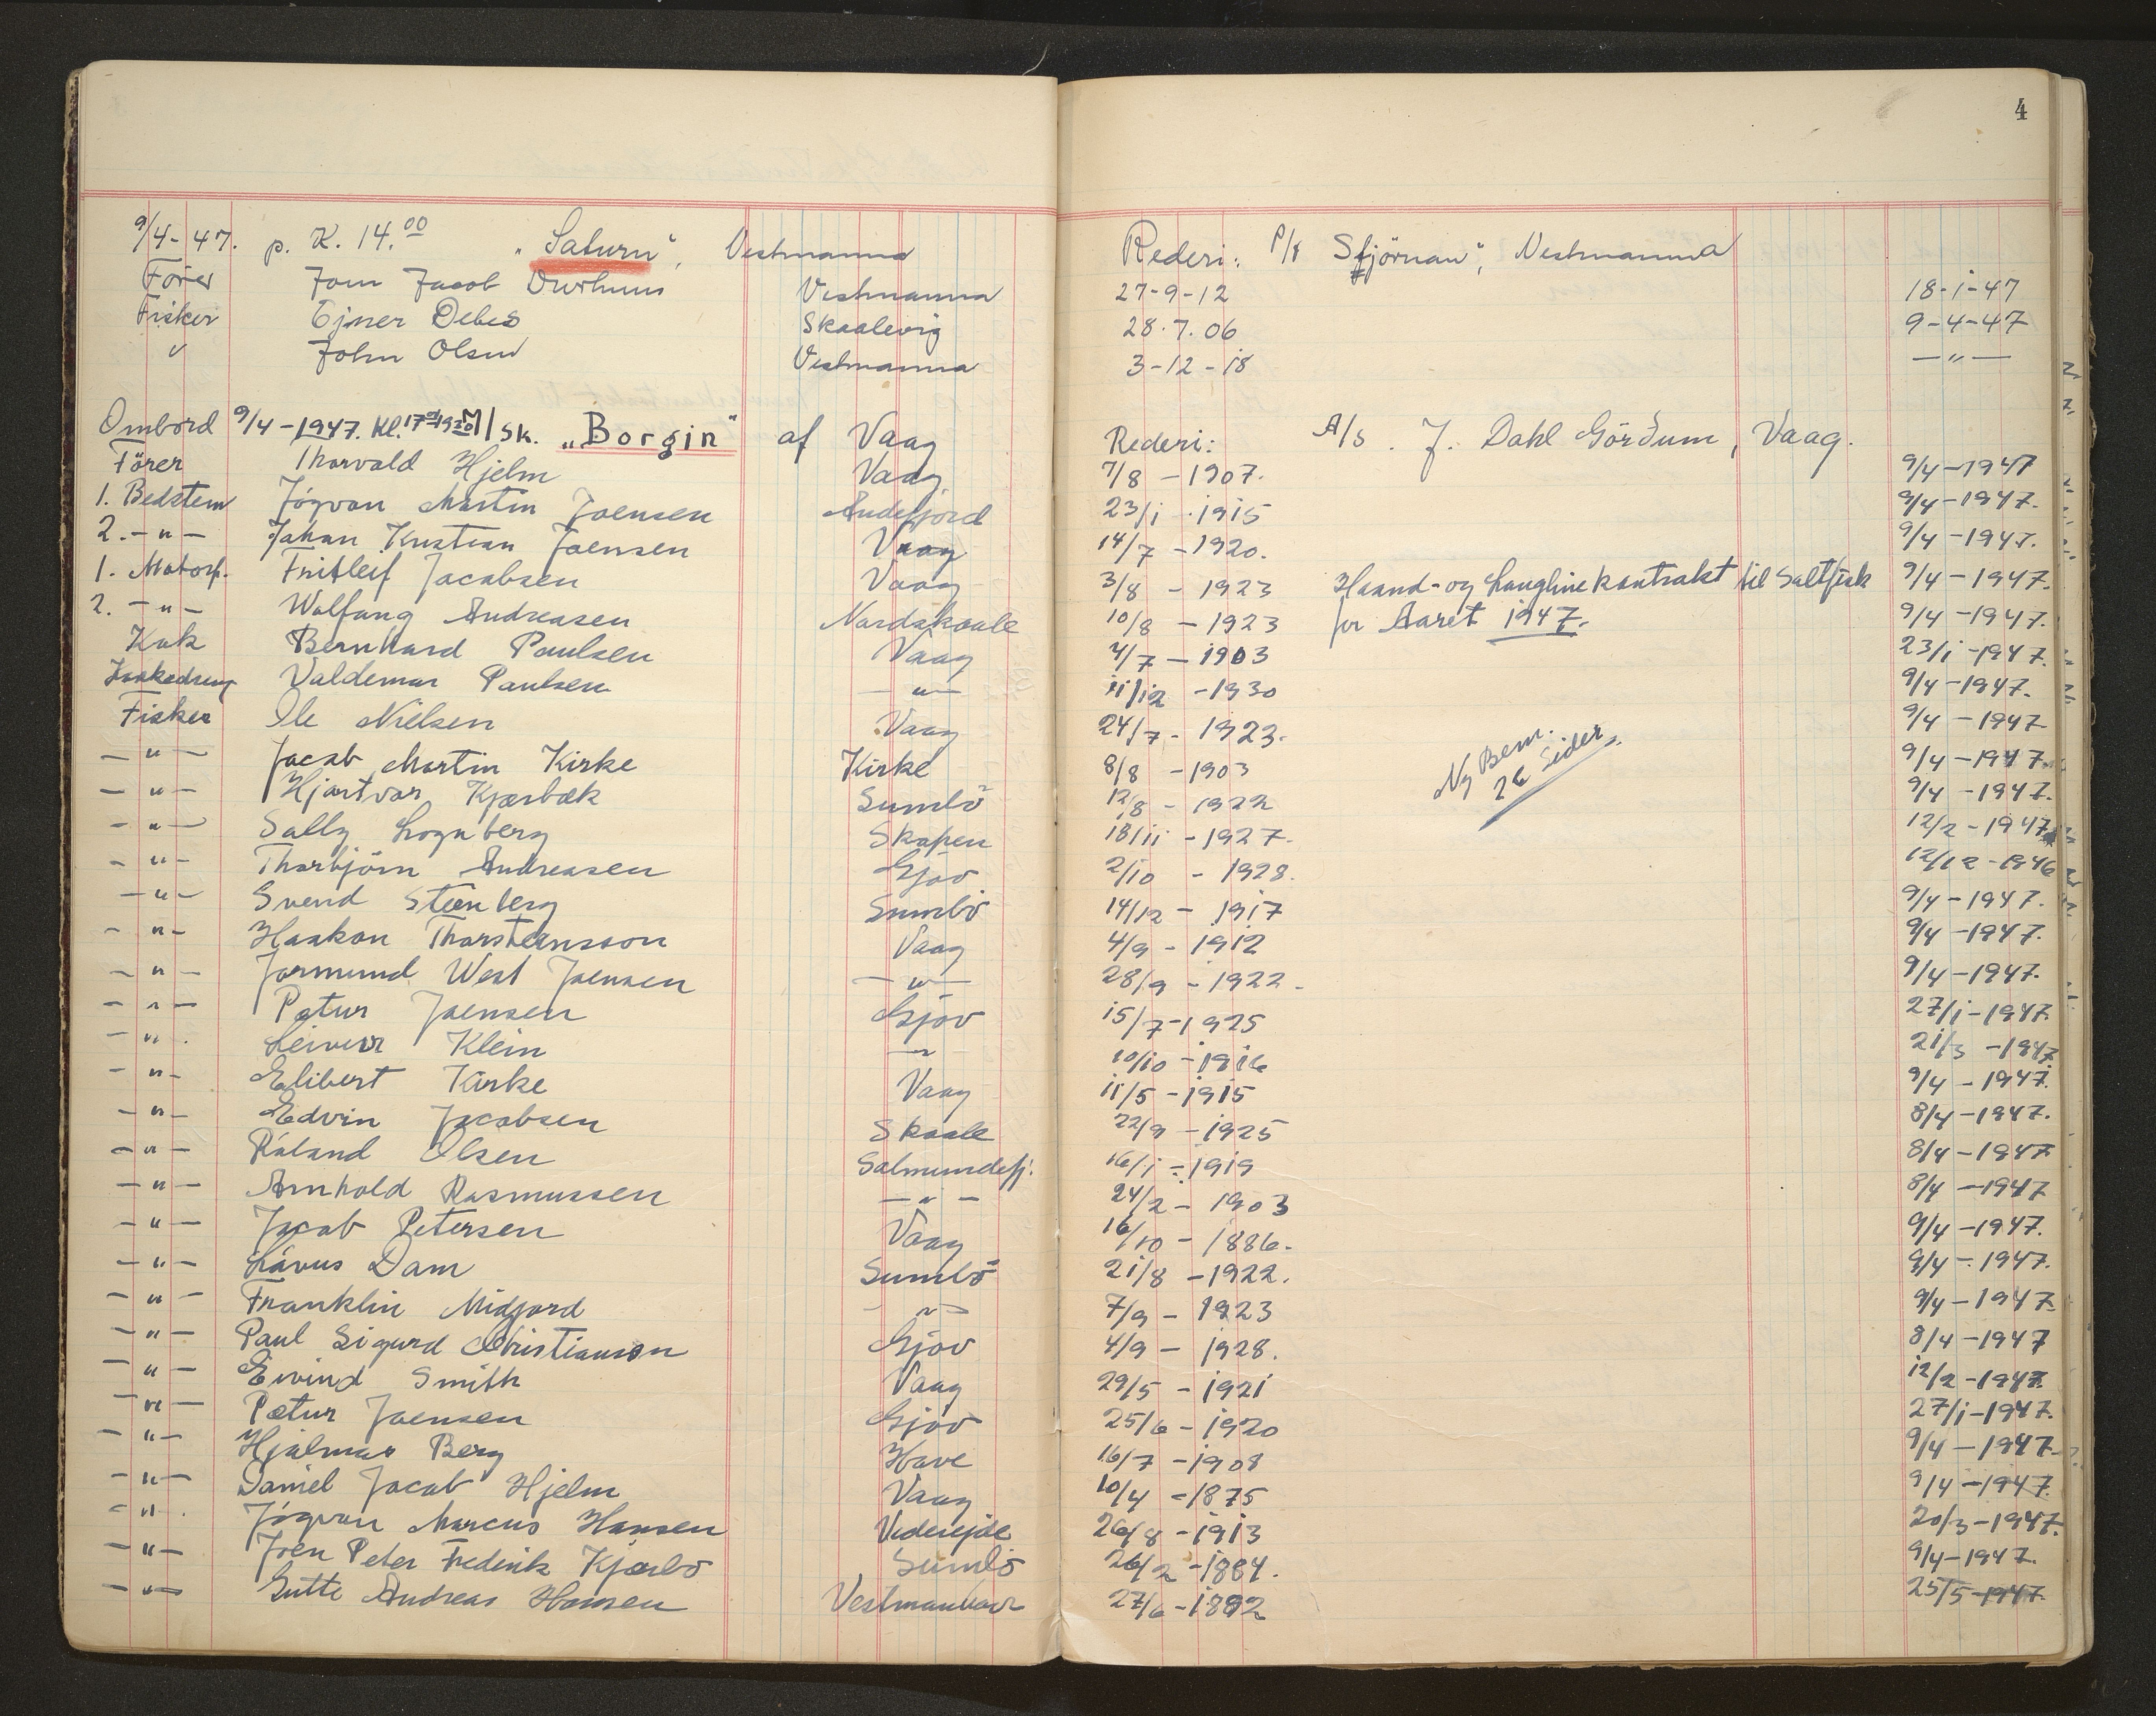 4
9/4-47. p. K. 14.00 "Saturn", Vestmanna Rederi: P/f Stjörnan", Vestmanna
Förer Jom Jacob Vestmanna 27-9-12 18-1-47
Fisker Ejner Debes Skaalevig 28.7.06 9-4-47
v John Olsen Vestmanna 3-12-18 —"—
Ombord 9/4-1947. Kl. M/Sk. „Borgin" af Vaag Rederi: A/S. J. Dahl Görðum, Vaag.
Förer Thorvald Hjelm Vaag 7/8-1907. 9/4-1947
1. Bedstem Jógvan Martin Joensen Andefjord 23/1-1915 9/4-1947.
2. -"- Johan Kristian Joensen Vaag 14/7-1920. 9/4-1947.
1. Motorp. Fritleif Jacobsen Vaag 3/8-1923 Haand- og Langlinekontrakt til Saltfisk 9/4-1947.
2. -"- Wolfang Andreasen Nordskaale 10/8-1923 for Aaret 1947. 9/4-1947.
Kok Bernhard Paulsen Vaag 4/7-1903 23/1-1947.
Kokkedreng Valdemar Paulsen -"- 11/12-1930 9/4-1947.
Fisker Ole Nielsen Vaag 24/7-1923. 9/4-1947
-"- Jacob Martin Kirke Kirke 8/8-1903 Ny Bem. 9/4-1947.
-"- Hjartvar Kjærbæk Sumbö 12/8-1922 26 Sider. 9/4-1947.
-"- Sally Lognberg Skopen 18/11-1927. 12/2-1947
-"- Thorbjörn Andreasen Gjov 2/10-1928. 12/12-1946
-"- Svend Stenberg Sumbö 14/12-1917 9/4-1947.
-"- Haakon Thorsteinsson Vaag 4/9-1912 9/4-1947.
-"- Jormund West Joensen -"- 28/9-1922. 9/4-1947.
-"- Petur Joensen Gjov 15/7-1925 27/1-1947.
-"- Leivur Klein -"- 10/10-1916 21/3-1947
-"- Elibert Kirke Vaag 11/5-1915 9/4-1947.
-"- Edvin Jacobsen Skaale 22/9-1925 8/4-1947.
-"- Róland Olsen Salmundefj. 16/1-1919 8/4-1947
-"- Arnhold Rasmussen -"- 24/2-1903 8/4-1947
-"- Jacob Petersen Vaag 16/10-1886. 9/4-1947.
-"- Lávus Dam Sumbö 21/8-1922. 9/4-1947.
-"- Franklin Midjord -"- 7/9-1923 9/4-1947
-"- Paul Sigurd Christiansen Gjov 4/9-1928. 8/4-1947
-"- Eivind Smith Vaag 29/5-1921 12/2-1947.
-"- Petur Joensen Gjov 25/6-1920 27/1-1947.
-"- Hjalmar Berg Hove 16/7-1908 9/4-1947.
-"- Daniel Jacob Hjelm Vaag 10/4-1875 9/4-1947.
-"- Jógvan Marcus Hansen Viderejde 26/8-1913 20/3-1947.
-"- Joen Peter Frederik Kjærbo Sumbö 26/2-1884. 9/4-1947.
-"- Gutte Andreas Hansen 27/6-1892 25/5-1947.